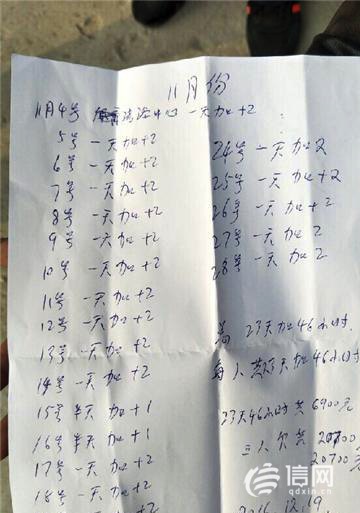 11月份
11月4号 一天加+2
5号 一天加+2
6号 一天加+2
7号 一天加+2
8号 一天加+2
9号 一天加+2
10号 一天加+2
11号 一天加+2
12号 一天加+2
13号 一天加+2
14号 一天加+2
15号 半天 加+1
16号 半天 加+1
17号 一天加+2
18号 一天加+2
24号 一天加2
25号 一天加+2
26号 一天加+2
27号 一天加2
28号 一天加2
23天加46小时
每人 23天加46小时
23天46小时共6900元
三人欠共20700
20700元
2016.12.19
信网
qdxin.cn